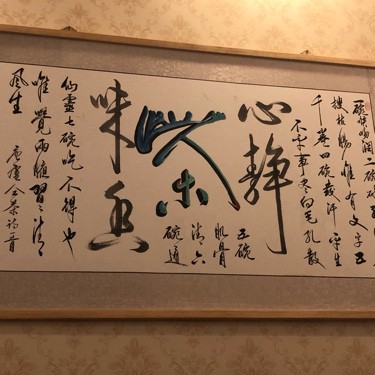 一碗喉吻润二碗破
搜枯腸惟有文字五
千卷四碗發汗平生
不平事尽向毛孔散
心静
茶
五碗
肌骨
清六
碗通
味
仙靈七碗吃不得也
唯覺兩腋習〻清
風生
唐盧仝茶詩